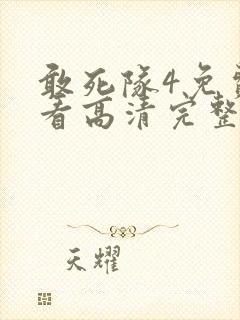 敢死隊4免
看高清完整
天耀